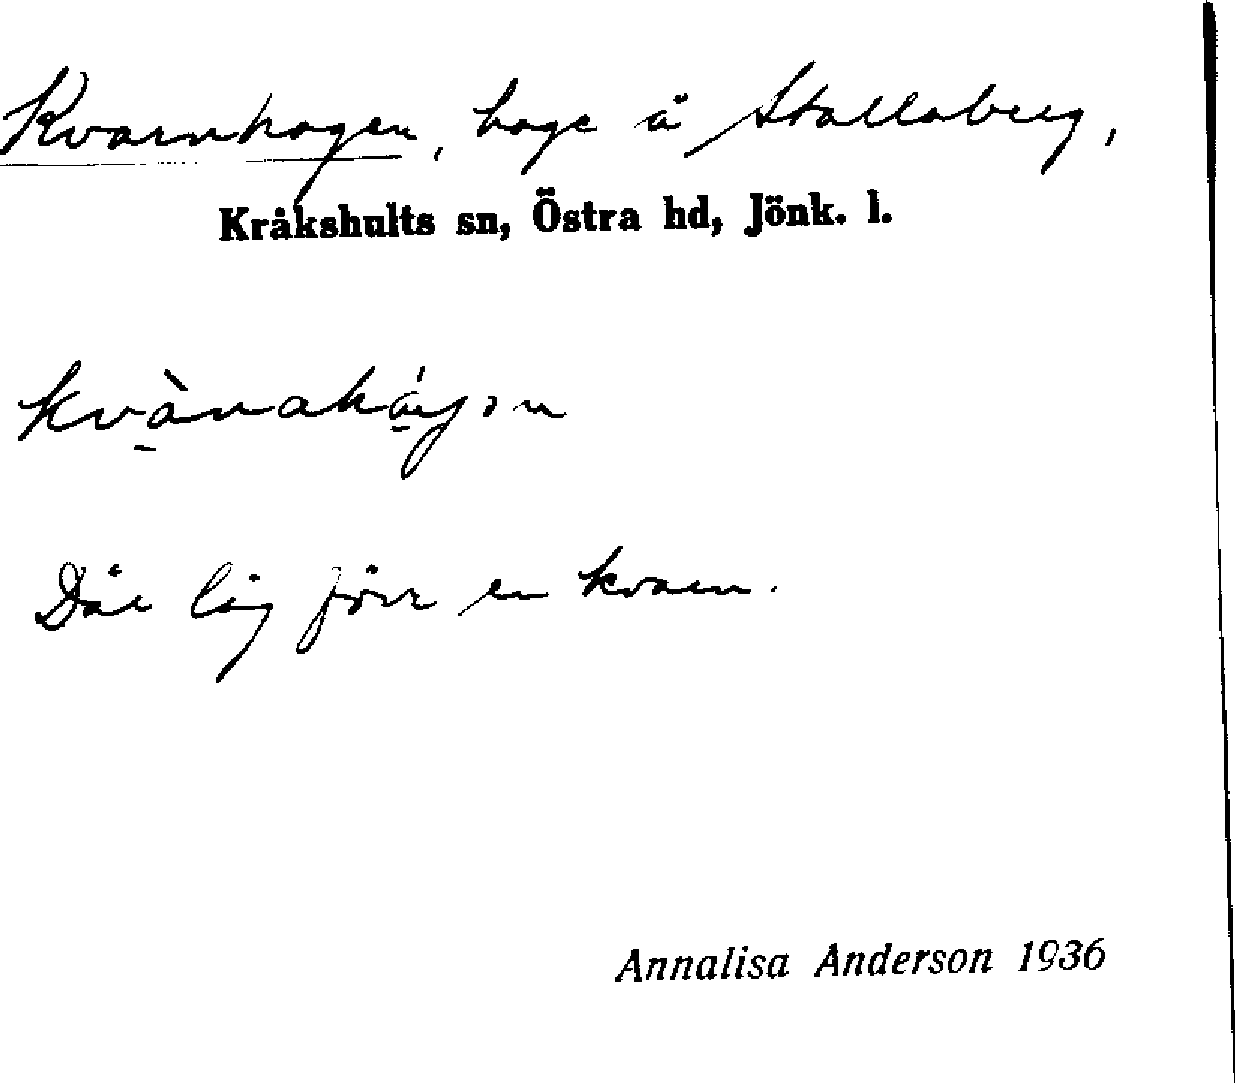 Kvarnhagen, hage å Stalloberg,
Kråkshults sn, Östra hd, Jönk. l.
Där låg förr en kvarn.
Annalisa Anderson 1936